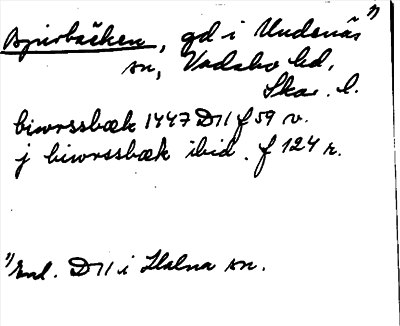 Bjurbäcken, gd i Undenäs 1)
sn, Vadsbo hd,
Skar. l.
biwrssbæk 1447 D11 f 59 v.
j biwrssbæk ibid. f 124 r.
1) Enl. D11 i Halna sn.